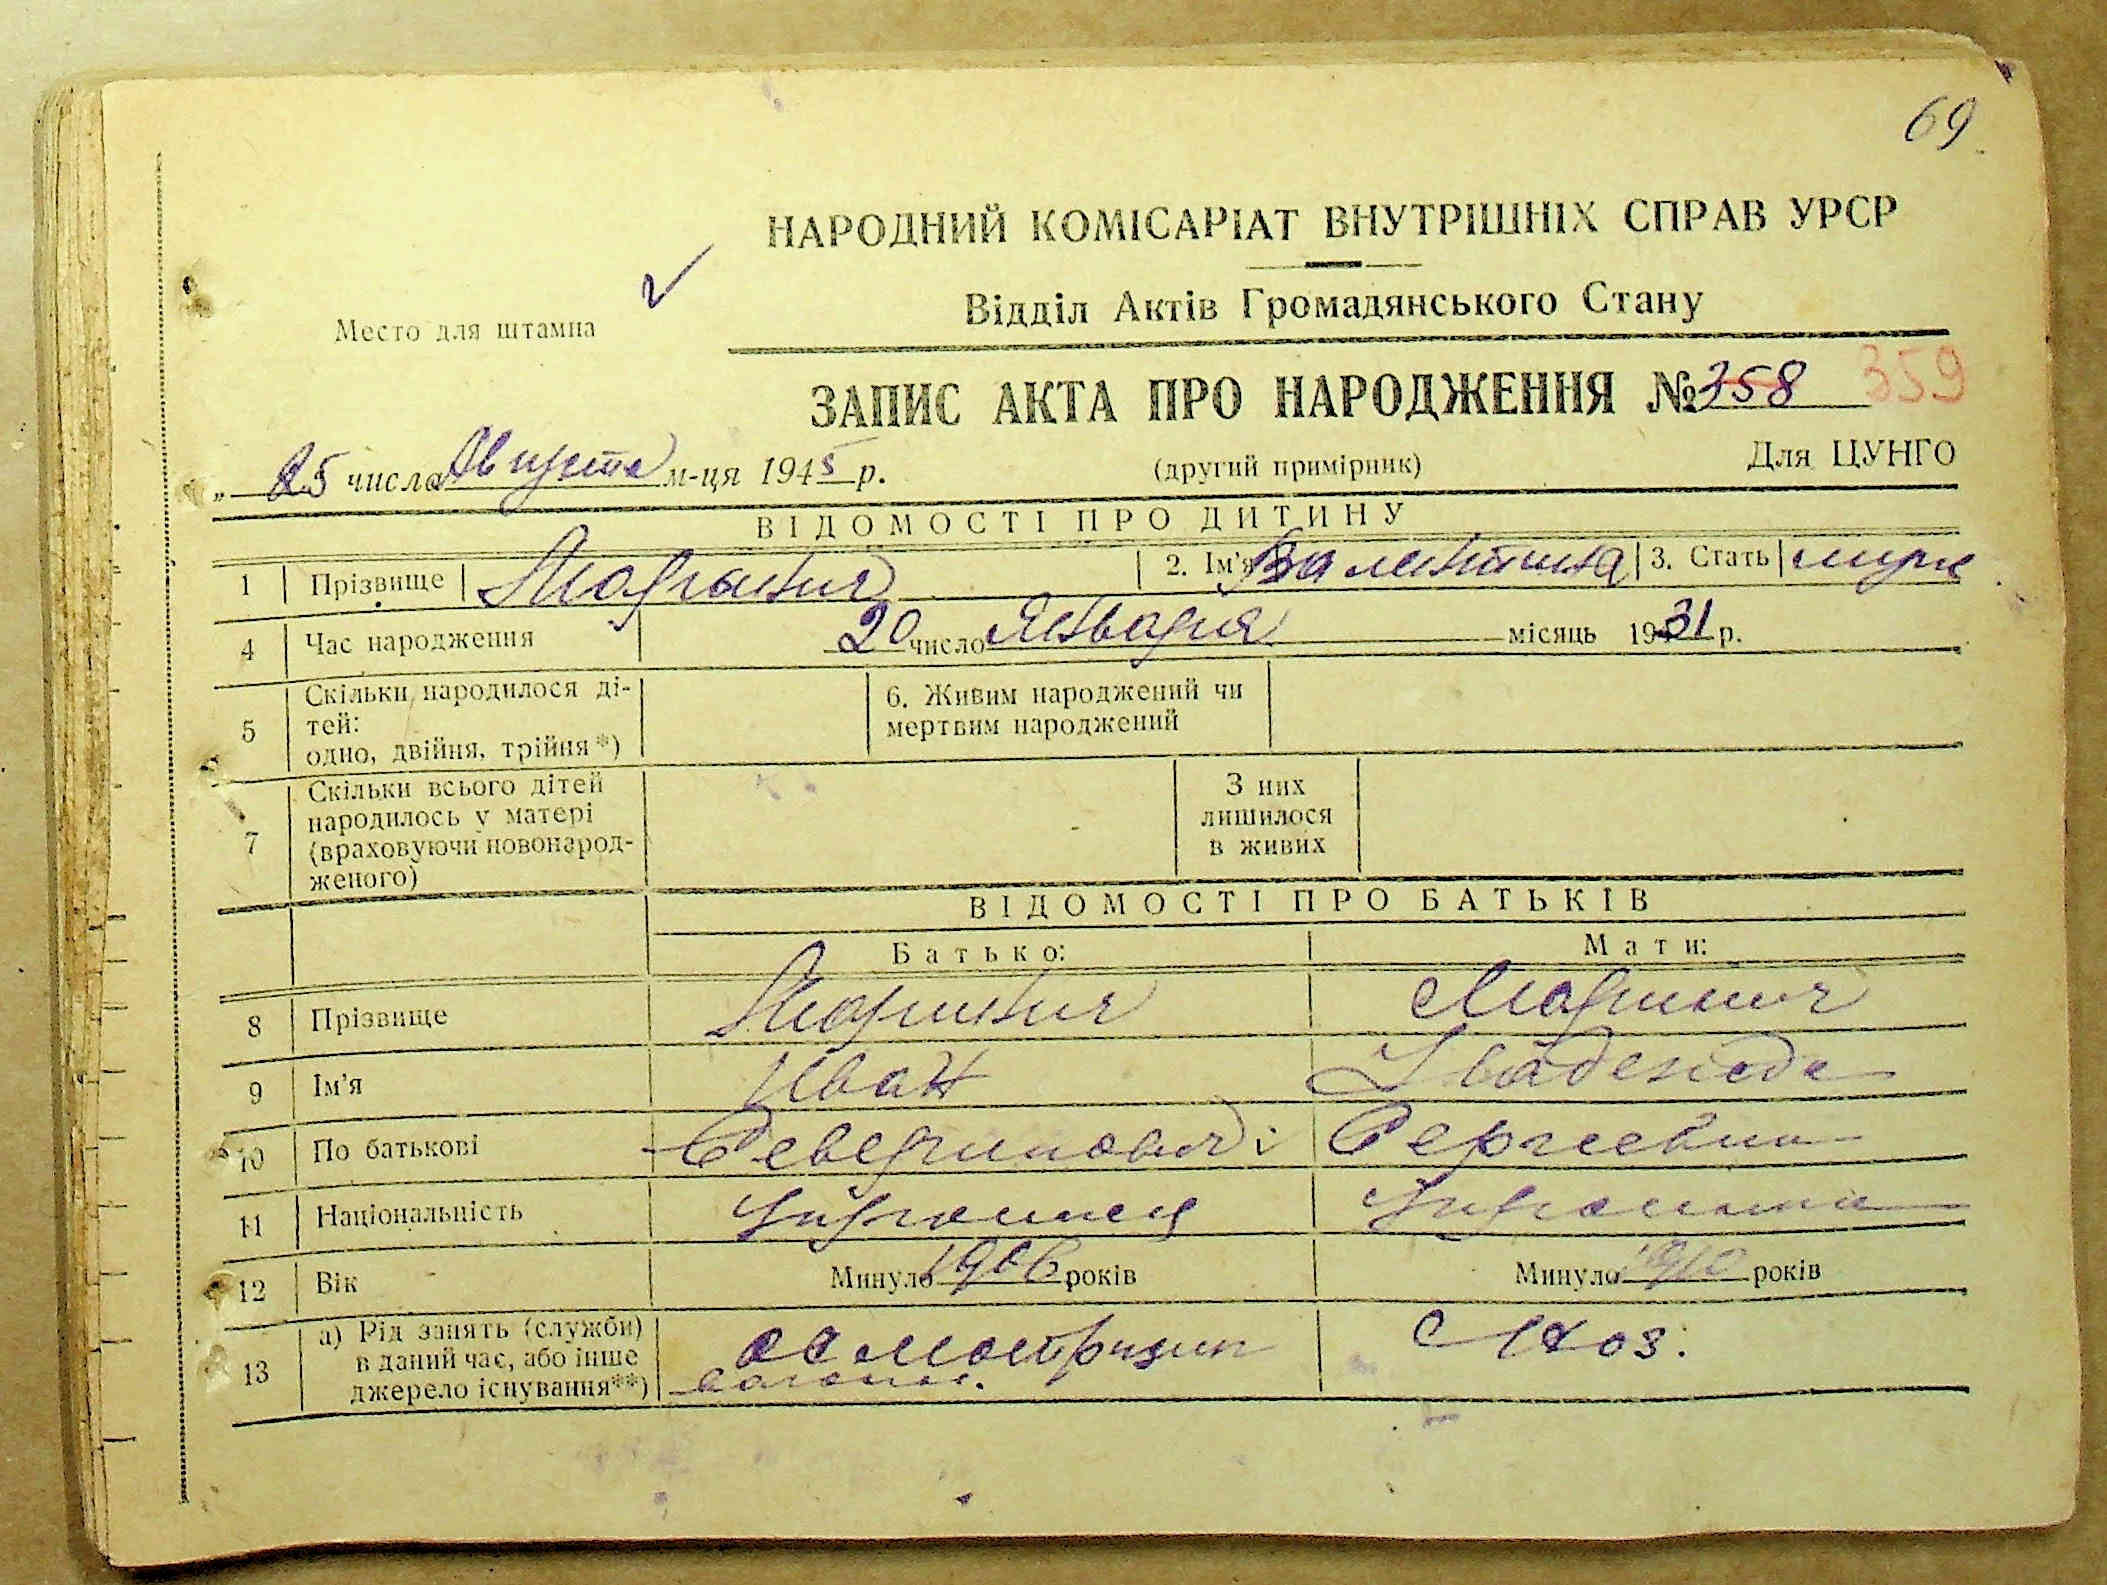 69
НАРОДНИЙ КОМІСАРІАТ ВНУТРІШНІХ СПРАВ УРСР
Відділ Актів Громадянського Стану
Место для штампа
ЗАПИС АКТА ПРО НАРОДЖЕННЯ № 358 359
„ 25 числа Августа м-ця 1945 р. (другий примірник) Для ЦУНГО
ВІДОМОСТІ ПРО ДИТИНУ
1 Прізвище 2. Ім'я Валентина 3. Стать
4 Час народження 20 число Января місяць 1931 р.
5 Скільки народилося ді-
тей:
одно, двійня, трійня*)
6. Живим народжений чи
мертвим народжений
7 Скільки всього дітей
народилось у матері
(враховуючи новонарод-
женого)
З них
лишилося
в живих
ВІДОМОСТІ ПРО БАТЬКІВ
Батько: Мати:
8 Прізвище
9 Ім'я Иван
10 По батькові Северинович Сергеевна
11 Національність Украинец Украинка
12 Вік Минуло 1906 років Минуло 1910 років
13 а) Рід занять (служби)
в даний час, або інше
джерело існування**)